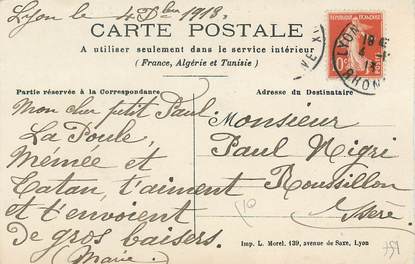 Lyon le 4 Xbre 1913.
CARTE POSTALE
A utiliser seulement dans le service intérieur
(France, Algérie et Tunisie)
Partie réservée à la Correspondance
Adresse du Destinataire
Mon cher petit Paul,
La Poule,
Mémée et
Tatan, t'aiment
et t'envoient
de gros baisers.
Marie
Monsieur
Paul Nigri
Roussillon
Isère
LYON
RHONE
Imp. L. Morel. 139, avenue de Saxe, Lyon